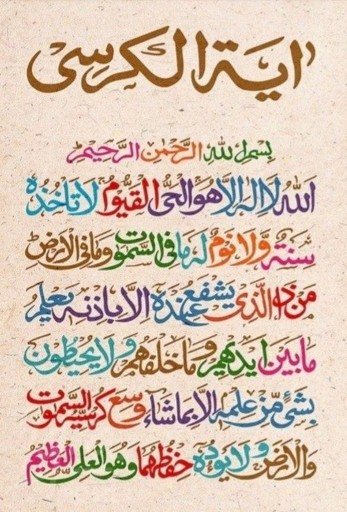 اية الكرسى
بسم الله الرحمن الرحيم
الله لا اله الا هو الحى القيوم لا تاخذه
سنة ولا نوم له ما فى السموت وما فى الارض
من ذا الذى يشفع عنده الا باذنه يعلم
ما بين ايديهم وما خلفهم ولا يحيطون
بشىء من علمه الا بما شاء وسع كرسيه السموت
والارض ولا يوده حفظهما وهو العلى العظيم